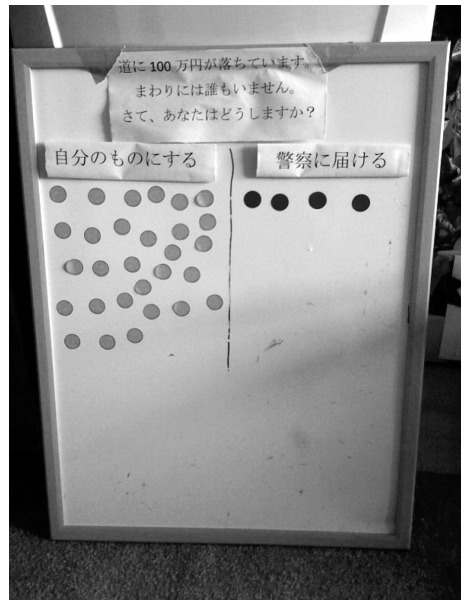 道に100万円が落ちています。
まわりには誰もいません。
さて、あなたはどうしますか？
自分のものにする
警察に届ける